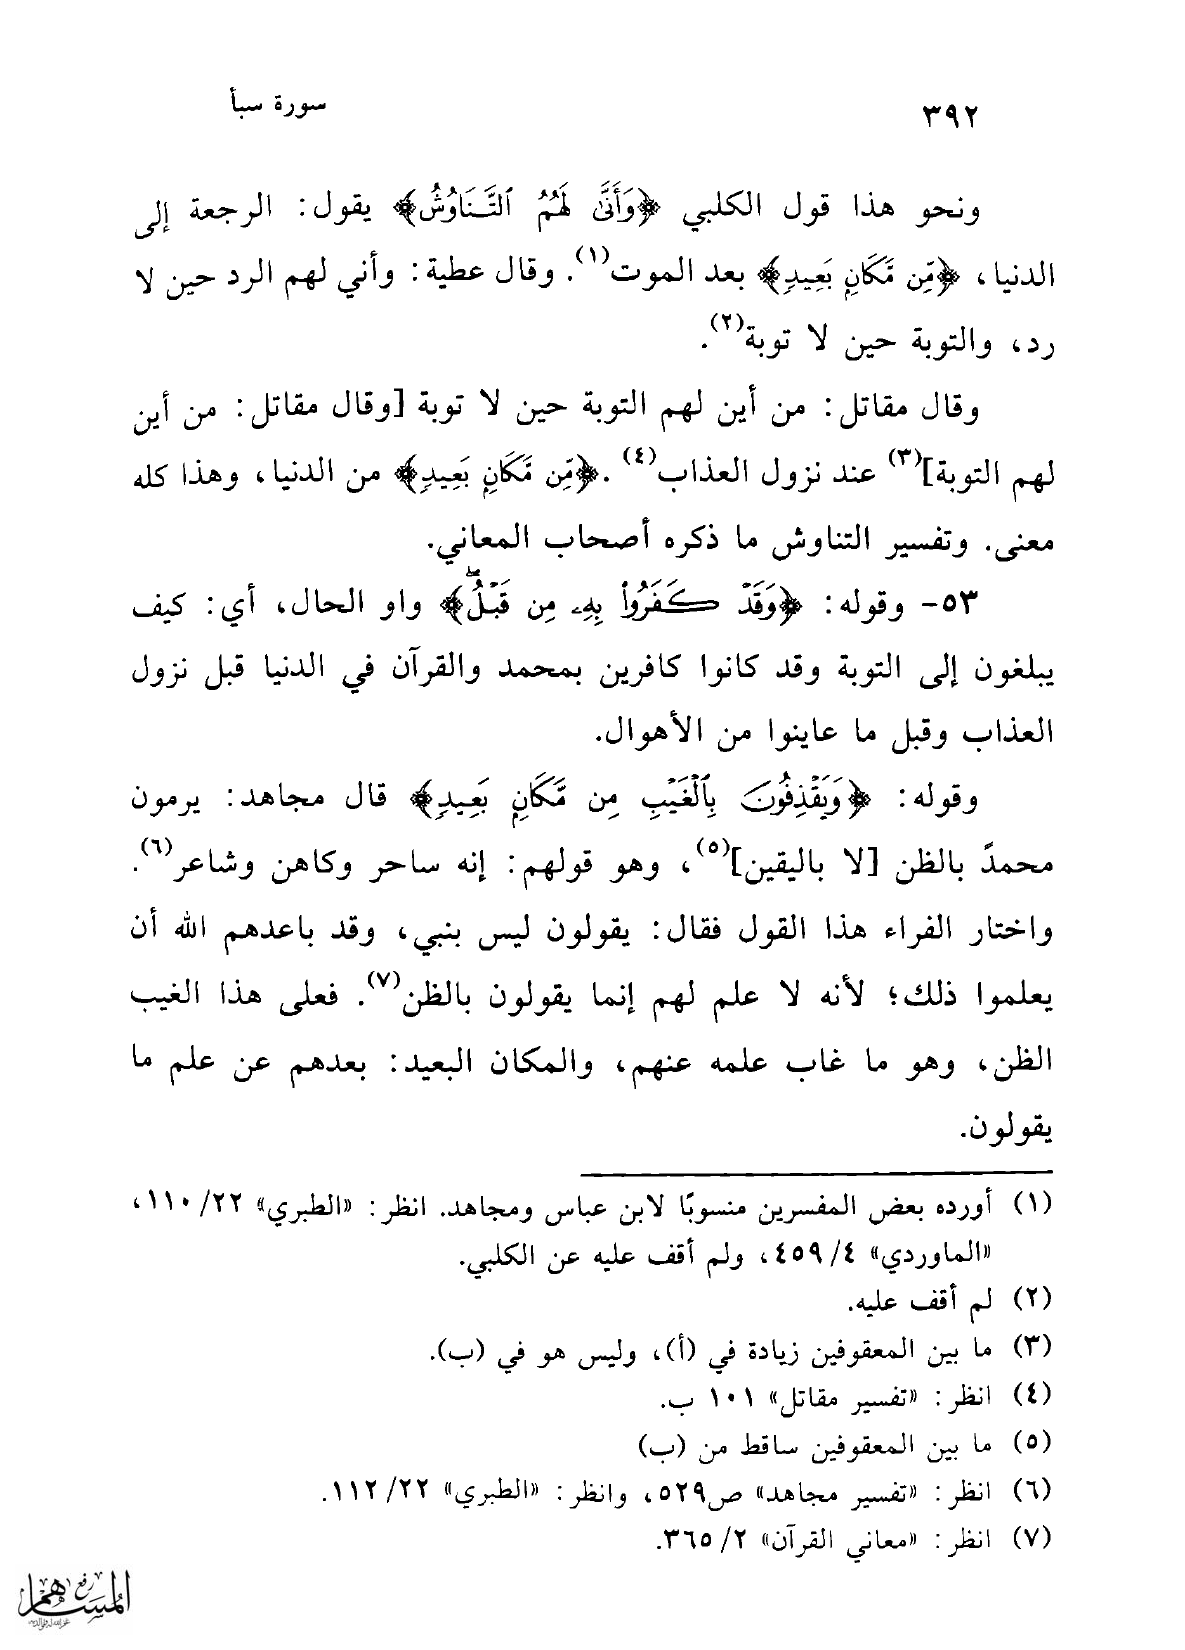 ٣٩٢
سورة سبأ
ونحو هذا قول الكلبي ﴿وَأَنَّىٰ لَهُمُ ٱلتَّنَاوُشُ﴾ يقول: الرجعة إلى
الدنيا، ﴿مِّن مَّكَانِۭ بَعِيدٖ﴾ بعد الموت(١). وقال عطية: وأني لهم الرد حين لا
رد، والتوبة حين لا توبة(٢).
وقال مقاتل: من أين لهم التوبة حين لا توبة [وقال مقاتل: من أين
لهم التوبة](٣) عند نزول العذاب(٤) .﴿مِّن مَّكَانِۭ بَعِيدٖ﴾ من الدنيا، وهذا كله
معنى. وتفسير التناوش ما ذكره أصحاب المعاني.
٥٣- وقوله: ﴿وَقَدۡ كَفَرُواْ بِهِۦ مِن قَبۡلُۖ﴾ واو الحال، أي: كيف
يبلغون إلى التوبة وقد كانوا كافرين بمحمد والقرآن في الدنيا قبل نزول
العذاب وقبل ما عاينوا من الأهوال.
وقوله: ﴿وَيَقۡذِفُونَ بِٱلۡغَيۡبِ مِن مَّكَانِۭ بَعِيدٖ﴾ قال مجاهد: يرمون
محمدً بالظن [لا باليقين](٥)، وهو قولهم: إنه ساحر وكاهن وشاعر(٦).
واختار الفراء هذا القول فقال: يقولون ليس بنبي، وقد باعدهم الله أن
يعلموا ذلك؛ لأنه لا علم لهم إنما يقولون بالظن(٧). فعلى هذا الغيب
الظن، وهو ما غاب علمه عنهم، والمكان البعيد: بعدهم عن علم ما
يقولون.
(١) أورده بعض المفسرين منسوبًا لابن عباس ومجاهد. انظر: «الطبري» ٢٢/ ١١٠،
«الماوردي» ٤/ ٤٥٩، ولم أقف عليه عن الكلبي.
(٢) لم أقف عليه.
(٣) ما بين المعقوفين زيادة في (أ)، وليس هو في (ب).
(٤) انظر: «تفسير مقاتل» ١٠١ ب.
(٥) ما بين المعقوفين ساقط من (ب)
(٦) انظر: «تفسير مجاهد» ص٥٢٩، وانظر: «الطبري» ٢٢/ ١١٢.
(٧) انظر: «معاني القرآن» ٢/ ٣٦٥.